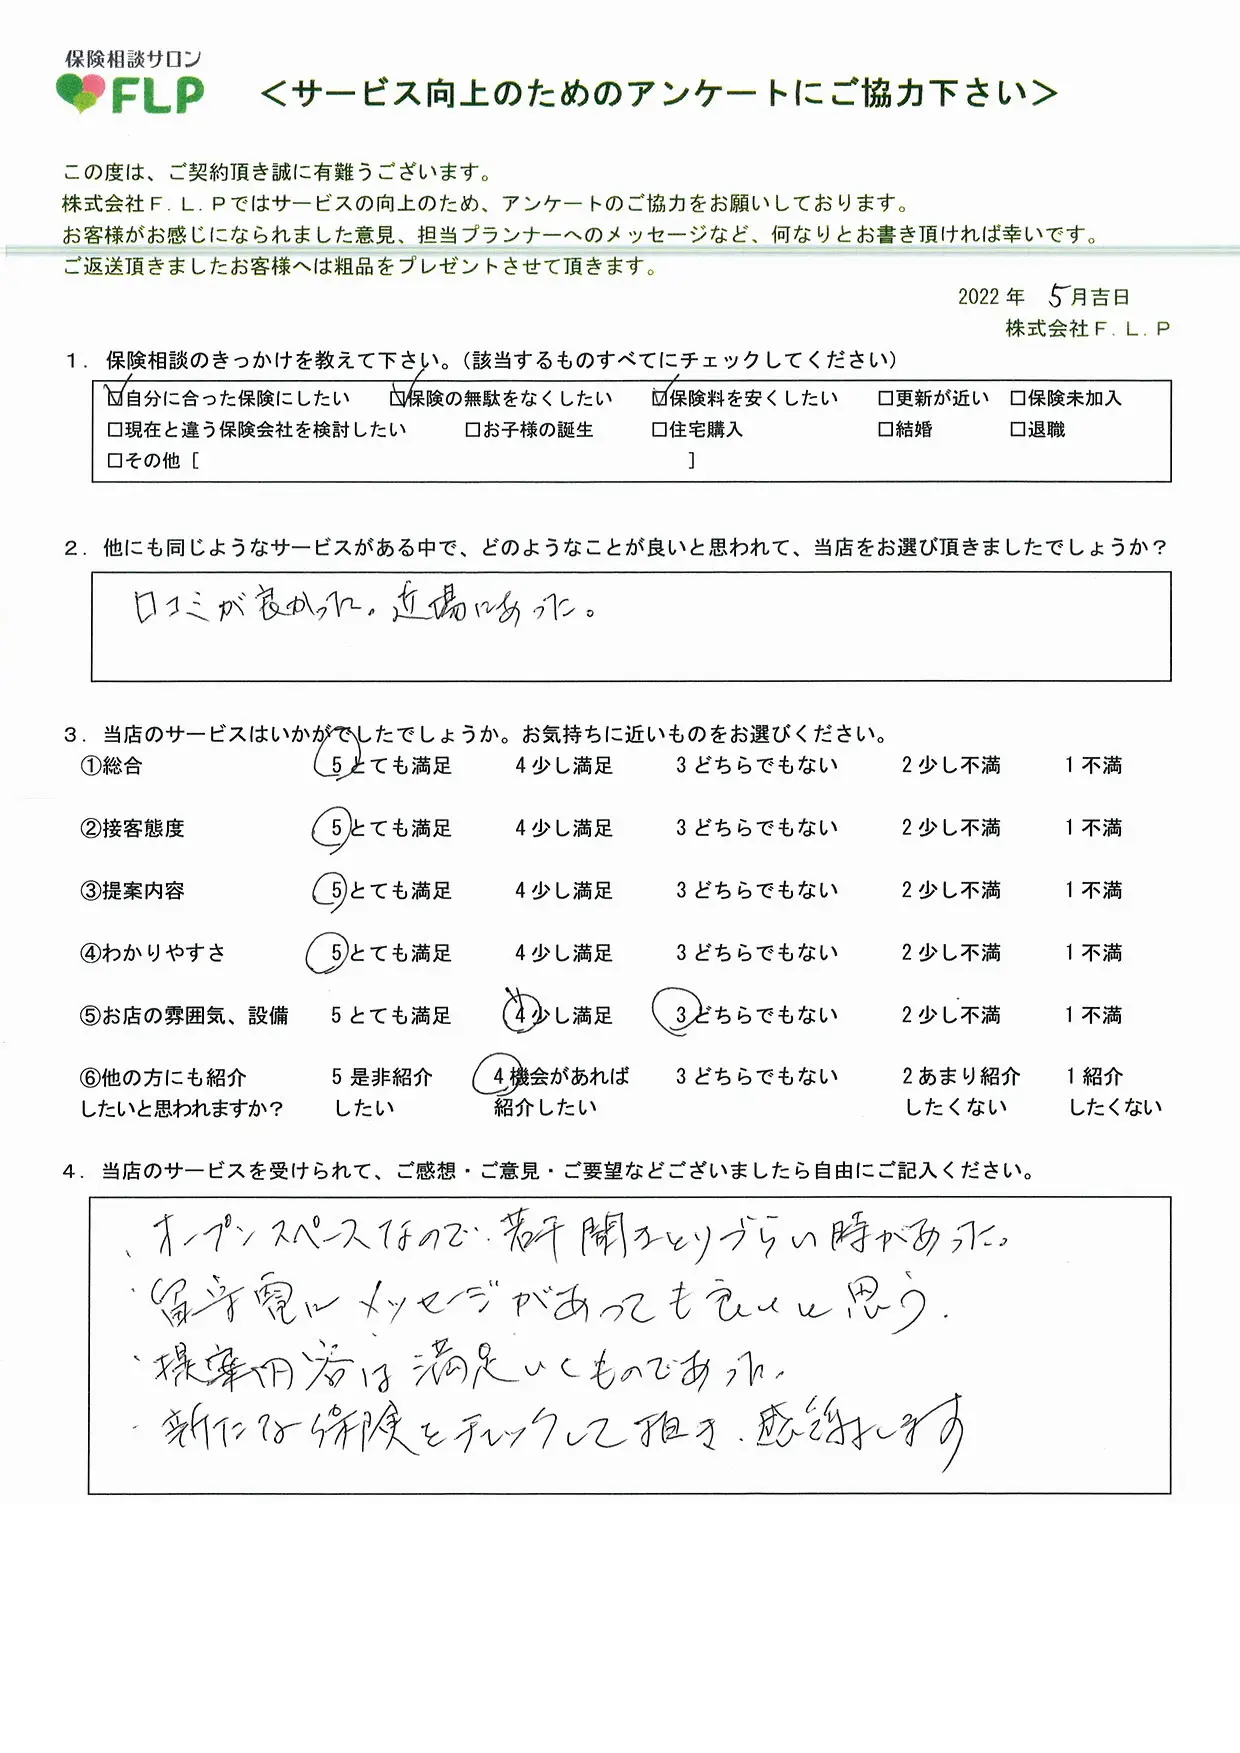 保険相談サロン
FLP
＜サービス向上のためのアンケートにご協力下さい＞
この度は、ご契約頂き誠に有難うございます。
株式会社Ｆ．Ｌ．Ｐではサービスの向上のため、アンケートのご協力をお願いしております。
お客様がお感じになられました意見、担当プランナーへのメッセージなど、何なりとお書き頂ければ幸いです。
ご返送頂きましたお客様へは粗品をプレゼントさせて頂きます。
2022 年 5月吉日
株式会社Ｆ．Ｌ．Ｐ
１．保険相談のきっかけを教えて下さい。（該当するものすべてにチェックしてください）
☑自分に合った保険にしたい ☑保険の無駄をなくしたい ☑保険料を安くしたい □更新が近い □保険未加入
□現在と違う保険会社を検討したい □お子様の誕生 □住宅購入 □結婚 □退職
□その他 [ ]
２．他にも同じようなサービスがある中で、どのようなことが良いと思われて、当店をお選び頂きましたでしょうか？
口コミが良かった。近場にあった。
３．当店のサービスはいかがでしたでしょうか。お気持ちに近いものをお選びください。
①総合 5 とても満足 4 少し満足 3 どちらでもない 2 少し不満 1 不満
②接客態度 5 とても満足 4 少し満足 3 どちらでもない 2 少し不満 1 不満
③提案内容 5 とても満足 4 少し満足 3 どちらでもない 2 少し不満 1 不満
④わかりやすさ 5 とても満足 4 少し満足 3 どちらでもない 2 少し不満 1 不満
⑤お店の雰囲気、設備 5 とても満足 4 少し満足 3 どちらでもない 2 少し不満 1 不満
⑥他の方にも紹介 5 是非紹介 4 機会があれば 3 どちらでもない 2 あまり紹介 1 紹介
したいと思われますか？ したい 紹介したい したくない したくない
４．当店のサービスを受けられて、ご感想・ご意見・ご要望などございましたら自由にご記入ください。
・オープンスペースなので、若干聞きとりづらい時があった。
・留守電にメッセージがあっても良いと思う．
・提案内容は満足いくものであった。
・新たな保険をチェックして頂き、感謝します